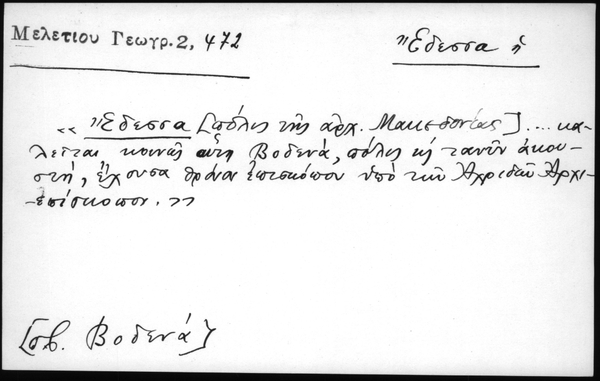 Μελετίου Γεωγρ. 2, 472
Ἔδεσσα ἡ
«Ἔδεσσα [πόλις τῆς ἀρχ. Μακεδονίας] .... κα-
λεῖται κοινῶς αὕτη Βοδενά, πόλις κ τανῦν ἀκου-
στή, ἔχουσα θρόνον ἐπισκόπου ὑπὸ τὸν Ἀχριδῶν Ἀρχι-
επίσκοπον.»
[σβ. Βοδενά]